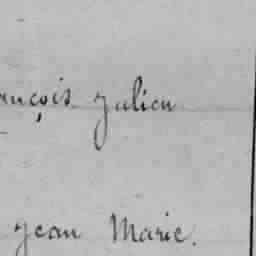 ançois Julien
Jean Marie.